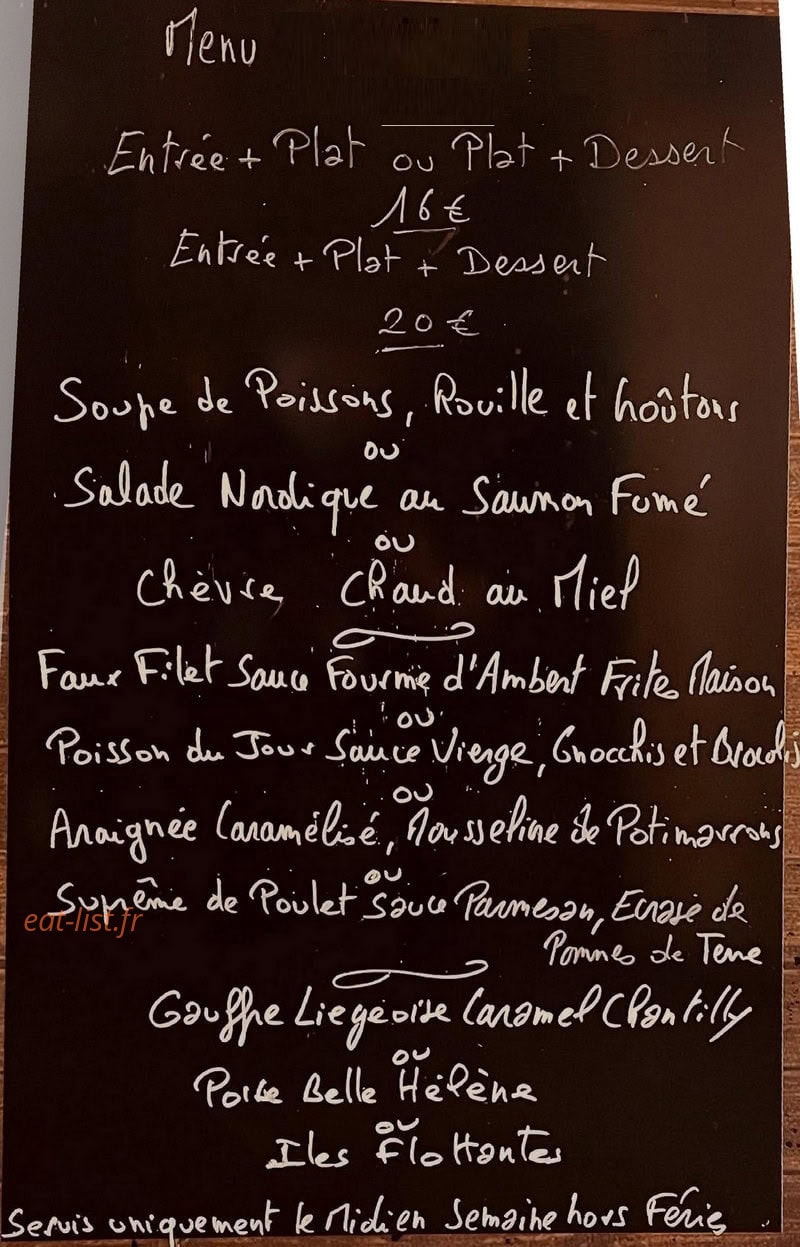 Menu
Entrée + Plat ou Plat + Dessert
16 €
Entrée + Plat + Dessert
20 €
Soupe de Poissons, Rouille et Croûtons
ou
Salade Nordique au Saumon Fumé
ou
Chèvre Chaud au Miel
Faux Filet Sauce Fourme d'Ambert Frites Maison
ou
Poisson du Jour Sauce Vierge, Gnocchis et Brocolis
ou
Araignée Caramélisé, Mousseline de Potimarrons
ou
Suprême de Poulet Sauce Parmesan, Ecrasé de
Pommes de Terre
eat-list.fr
Gauffre Liégeoise Caramel Chantilly
ou
Poire Belle Hélène
ou
Iles Flottantes
Servis uniquement le Midi en Semaine hors Fériés